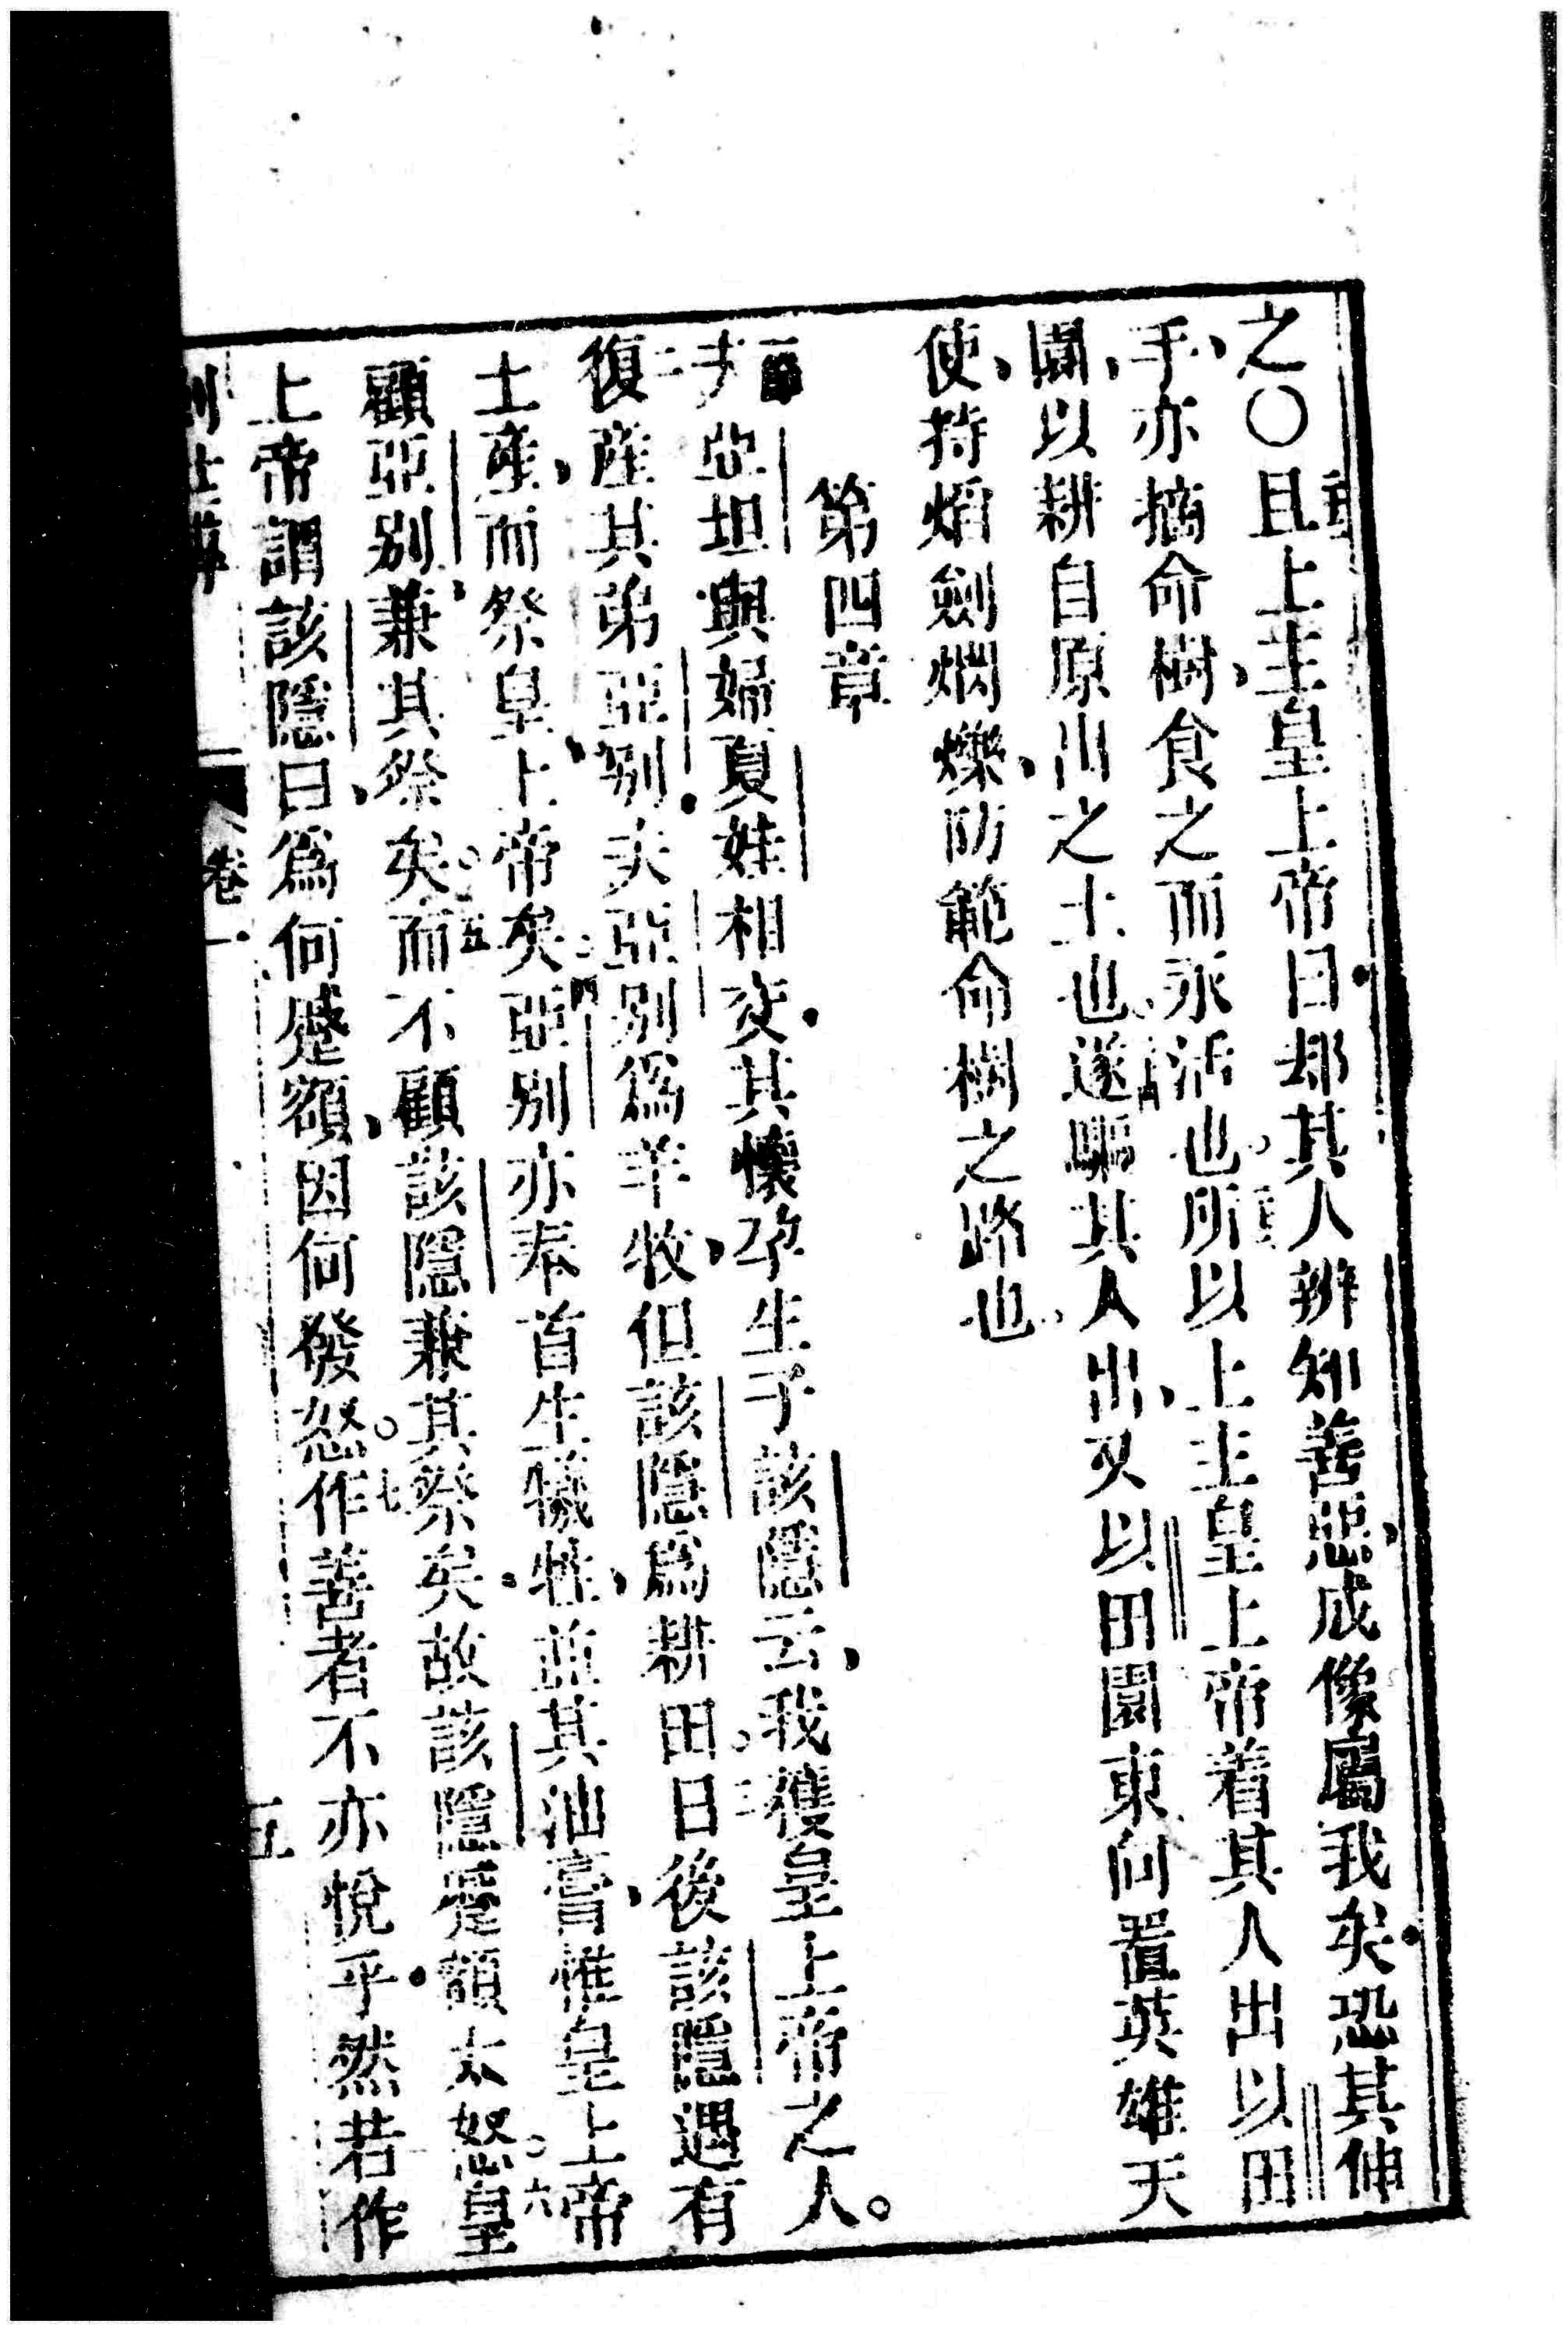 之〇且上主皇上帝曰却其人辨知善惡、成像屬我矣恐其伸
手、亦摘命樹、食之而永活也。所以上主皇上帝着其人出以田
園、以耕自原出之土也、遂驅其人出、又以田園東向置英雄天
使、持焰劍爛爍、防範命樹之路也
第四章
一節 夫亞坦與婦夏娃相交其懷孕生子該隱云、我獲皇上帝之人。
二 復產其弟亞別夫亞別爲羊牧、但該隱爲耕田。三 日後該隱遇有
土產、而祭皇上帝矣 四 亞別亦奉首生犧牲、並其油膏、惟皇上帝
顧亞別、兼其祭矣。五 而不顧該隱兼其祭矣故該隱蹙額太怒。六 皇
上帝謂該隱曰、爲何蹙額、因何發怒。七 作善者不亦悅乎然若作
卷一
五